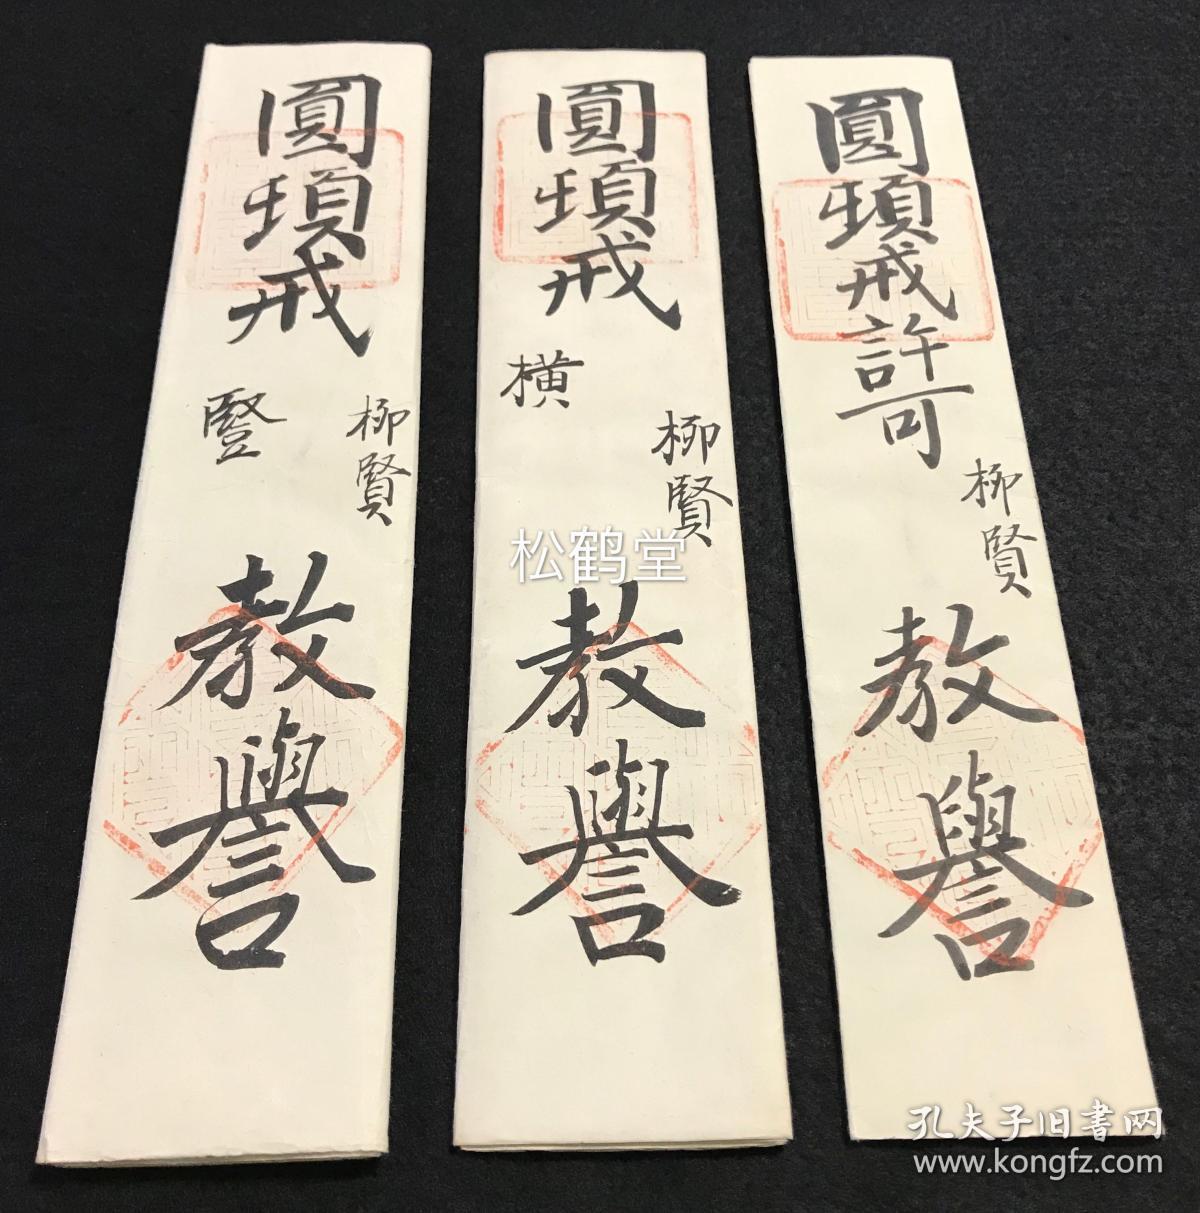 圓頓戒
竪
柳賢
教譽
圓頓戒
橫
柳賢
教譽
圓頓戒許可
柳賢
教譽
松鹤堂
孔夫子旧书网
www.kongfz.com